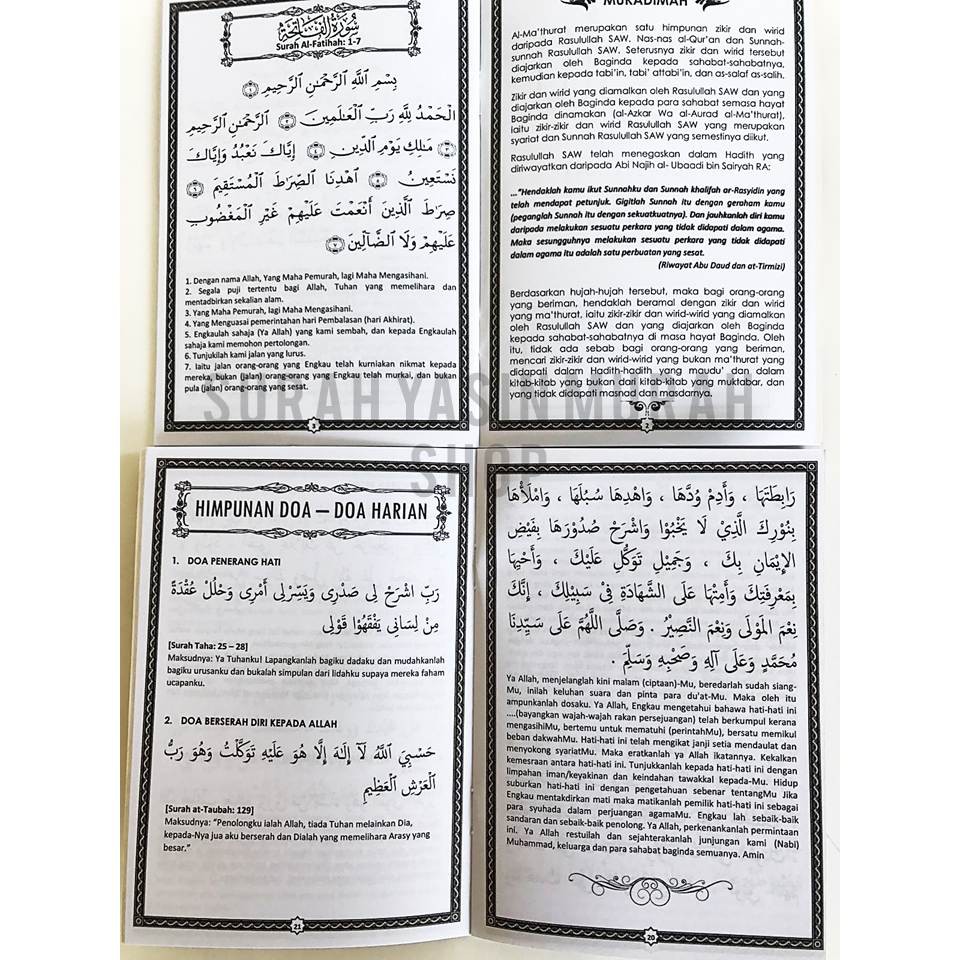 سُورَةُ الفَاتِحَةِ
Surah Al-Fatihah: 1-7
بِسْمِ اللَّهِ الرَّحْمَٰنِ الرَّحِيمِ ١
الْحَمْدُ لِلَّهِ رَبِّ الْعَالَمِينَ ٢ الرَّحْمَٰنِ الرَّحِيمِ
٣ مَالِكِ يَوْمِ الدِّينِ ٤ إِيَّاكَ نَعْبُدُ وَإِيَّاكَ
نَسْتَعِينُ ٥ اهْدِنَا الصِّرَاطَ الْمُسْتَقِيمَ ٦
صِرَاطَ الَّذِينَ أَنْعَمْتَ عَلَيْهِمْ غَيْرِ الْمَغْضُوبِ
عَلَيْهِمْ وَلَا الضَّالِّينَ ٧
1. Dengan nama Allah, Yang Maha Pemurah, lagi Maha Mengasihani.
2. Segala puji tertentu bagi Allah, Tuhan yang memelihara dan
mentadbirkan sekalian alam.
3. Yang Maha Pemurah, lagi Maha Mengasihani.
4. Yang Menguasai pemerintahan hari Pembalasan (hari Akhirat).
5. Engkaulah sahaja (Ya Allah) yang kami sembah, dan kepada Engkaulah
sahaja kami memohon pertolongan.
6. Tunjukilah kami jalan yang lurus.
7. Iaitu jalan orang-orang yang Engkau telah kurniakan nikmat kepada
mereka, bukan (jalan) orang-orang yang Engkau telah murkai, dan bukan
pula (jalan) orang-orang yang sesat.
3
MUKADIMAH
Al-Ma'thurat merupakan satu himpunan zikir dan wirid
daripada Rasulullah SAW. Nas-nas al-Qur'an dan Sunnah-
sunnah Rasulullah SAW. Seterusnya zikir dan wirid tersebut
diajarkan oleh Baginda kepada sahabat-sahabatnya,
kemudian kepada tabi'in, tabi' attabi'in, dan as-salaf as-salih.
Zikir dan wirid yang diamalkan oleh Rasulullah SAW dan yang
diajarkan oleh Baginda kepada para sahabat semasa hayat
Baginda dinamakan (al-Azkar Wa al-Aurad al-Ma'thurat),
Iaitu zikir-zikir dan wirid Rasulullah SAW yang merupakan
syariat dan Sunnah Rasulullah SAW yang semestinya diikut.
Rasulullah SAW telah menegaskan dalam Hadith yang
diriwayatkan daripada Abi Najih al- Ubaadi bin Sairyah RA:
..."Hendaklah kamu ikut Sunnahku dan Sunnah khalifah ar-Rasyidin yang
telah mendapat petunjuk. Gigitlah Sunnah itu dengan geraham kamu
(peganglah Sunnah itu dengan sekuatkuatnya). Dan jauhkanlah diri kamu
daripada melakukan sesuatu perkara yang tidak didapati dalam agama.
Maka sesungguhnya melakukan sesuatu perkara yang tidak didapati
dalam agama itu adalah satu perbuatan yang sesat.
(Riwayat Abu Daud dan at-Tirmizi)
Berdasarkan hujah-hujah tersebut, maka bagi orang-orang
yang beriman, hendaklah beramal dengan zikir dan wirid
yang ma'thurat, iaitu zikir-zikir dan wirid-wirid yang diamalkan
oleh Rasulullah SAW dan yang diajarkan oleh Baginda
kepada sahabat-sahabatnya di masa hayat Baginda. Oleh
itu, tidak ada sebab bagi orang-orang yang beriman,
mencari zikir-zikir dan wirid-wirid yang bukan ma'thurat yang
didapati dalam Hadith-hadith yang maudu' dan dalam
kitab-kitab yang bukan dari kitab-kitab yang muktabar, dan
yang tidak didapati masnad dan masdarnya.
2
SURAH YASIN MURAH
SHOP
HIMPUNAN DOA – DOA HARIAN
1. DOA PENERANG HATI
رَبِّ اشْرَحْ لِى صَدْرِى وَيَسِّرْلِى أَمْرِى وَحْلُلْ عُقْدَةً
مِنْ لِسَانِى يَفْقَهُوْا قَوْلِى
[Surah Taha: 25 – 28]
Maksudnya: Ya Tuhanku! Lapangkanlah bagiku dadaku dan mudahkanlah
bagiku urusanku dan bukalah simpulan dari lidahku supaya mereka faham
ucapanku.
2. DOA BERSERAH DIRI KEPADA ALLAH
حَسْبِيَ اللَّهُ لَآ إِلَٰهَ إِلَّا هُوَ عَلَيْهِ تَوَكَّلْتُ وَهُوَ رَبُّ
الْعَرْشِ الْعَظِيمِ
[Surah at-Taubah: 129]
Maksudnya: "Penolongku ialah Allah, tiada Tuhan melainkan Dia,
kepada-Nya jua aku berserah dan Dialah yang memelihara Arasy yang
besar."
21
رَابِطَتَهَا ، وَأَدِمْ وُدَّهَا ، وَاهْدِهَا سُبُلَهَا ، وَامْلَأْهَا
بِنُوْرِكَ الَّذِيْ لَا يَخْبُوْا وَاشْرَحْ صُدُوْرَهَا بِفَيْضِ
الإِيْمَانِ بِكَ ، وَجَمِيْلِ تَوَكُّلِ عَلَيْكَ ، وَأَحْيِهَا
بِمَعْرِفَتِكَ وَأَمِتْهَا عَلَى الشَّهَادَةِ فِيْ سَبِيْلِكَ ، إِنَّكَ
نِعْمَ الْمَوْلَى وَنِعْمَ النَّصِيْرُ . وَصَلَّى اللَّهُمَّ عَلَى سَيِّدِنَا
مُحَمَّدٍ وَعَلَى آلِهِ وَصَحْبِهِ وَسَلِّمْ .
Ya Allah, menjelanglah kini malam (ciptaan)-Mu, beredarlah sudah siang-
Mu, inilah keluhan suara dan pinta para du'at-Mu. Maka oleh itu
ampunkanlah dosaku. Ya Allah, Engkau mengetahui bahawa hati-hati ini
....(bayangkan wajah-wajah rakan persejuangan) telah berkumpul kerana
mengasihiMu, bertemu untuk mematuhi (perintahMu), bersatu memikul
beban dakwahMu. Hati-hati ini telah mengikat janji setia mendaulat dan
menyokong syariatMu. Maka eratkanlah ya Allah ikatannya. Kekalkan
kemesraan antara hati-hati ini. Tunjukkanlah kepada hati-hati ini dengan
limpahan iman/keyakinan dan keindahan tawakkal kepada-Mu. Hidup
suburkan hati-hati ini dengan pengetahuan sebenar tentangMu Jika
Engkau mentakdirkan mati maka matikanlah pemilik hati-hati ini sebagai
para syuhada dalam perjuangan agamaMu. Engkau lah sebaik-baik
sandaran dan sebaik-baik penolong. Ya Allah, perkenankanlah permintaan
ini. Ya Allah restuilah dan sejahterakanlah junjungan kami (Nabi)
Muhammad, keluarga dan para sahabat baginda semuanya. Amin
20